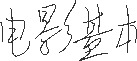 电影基本